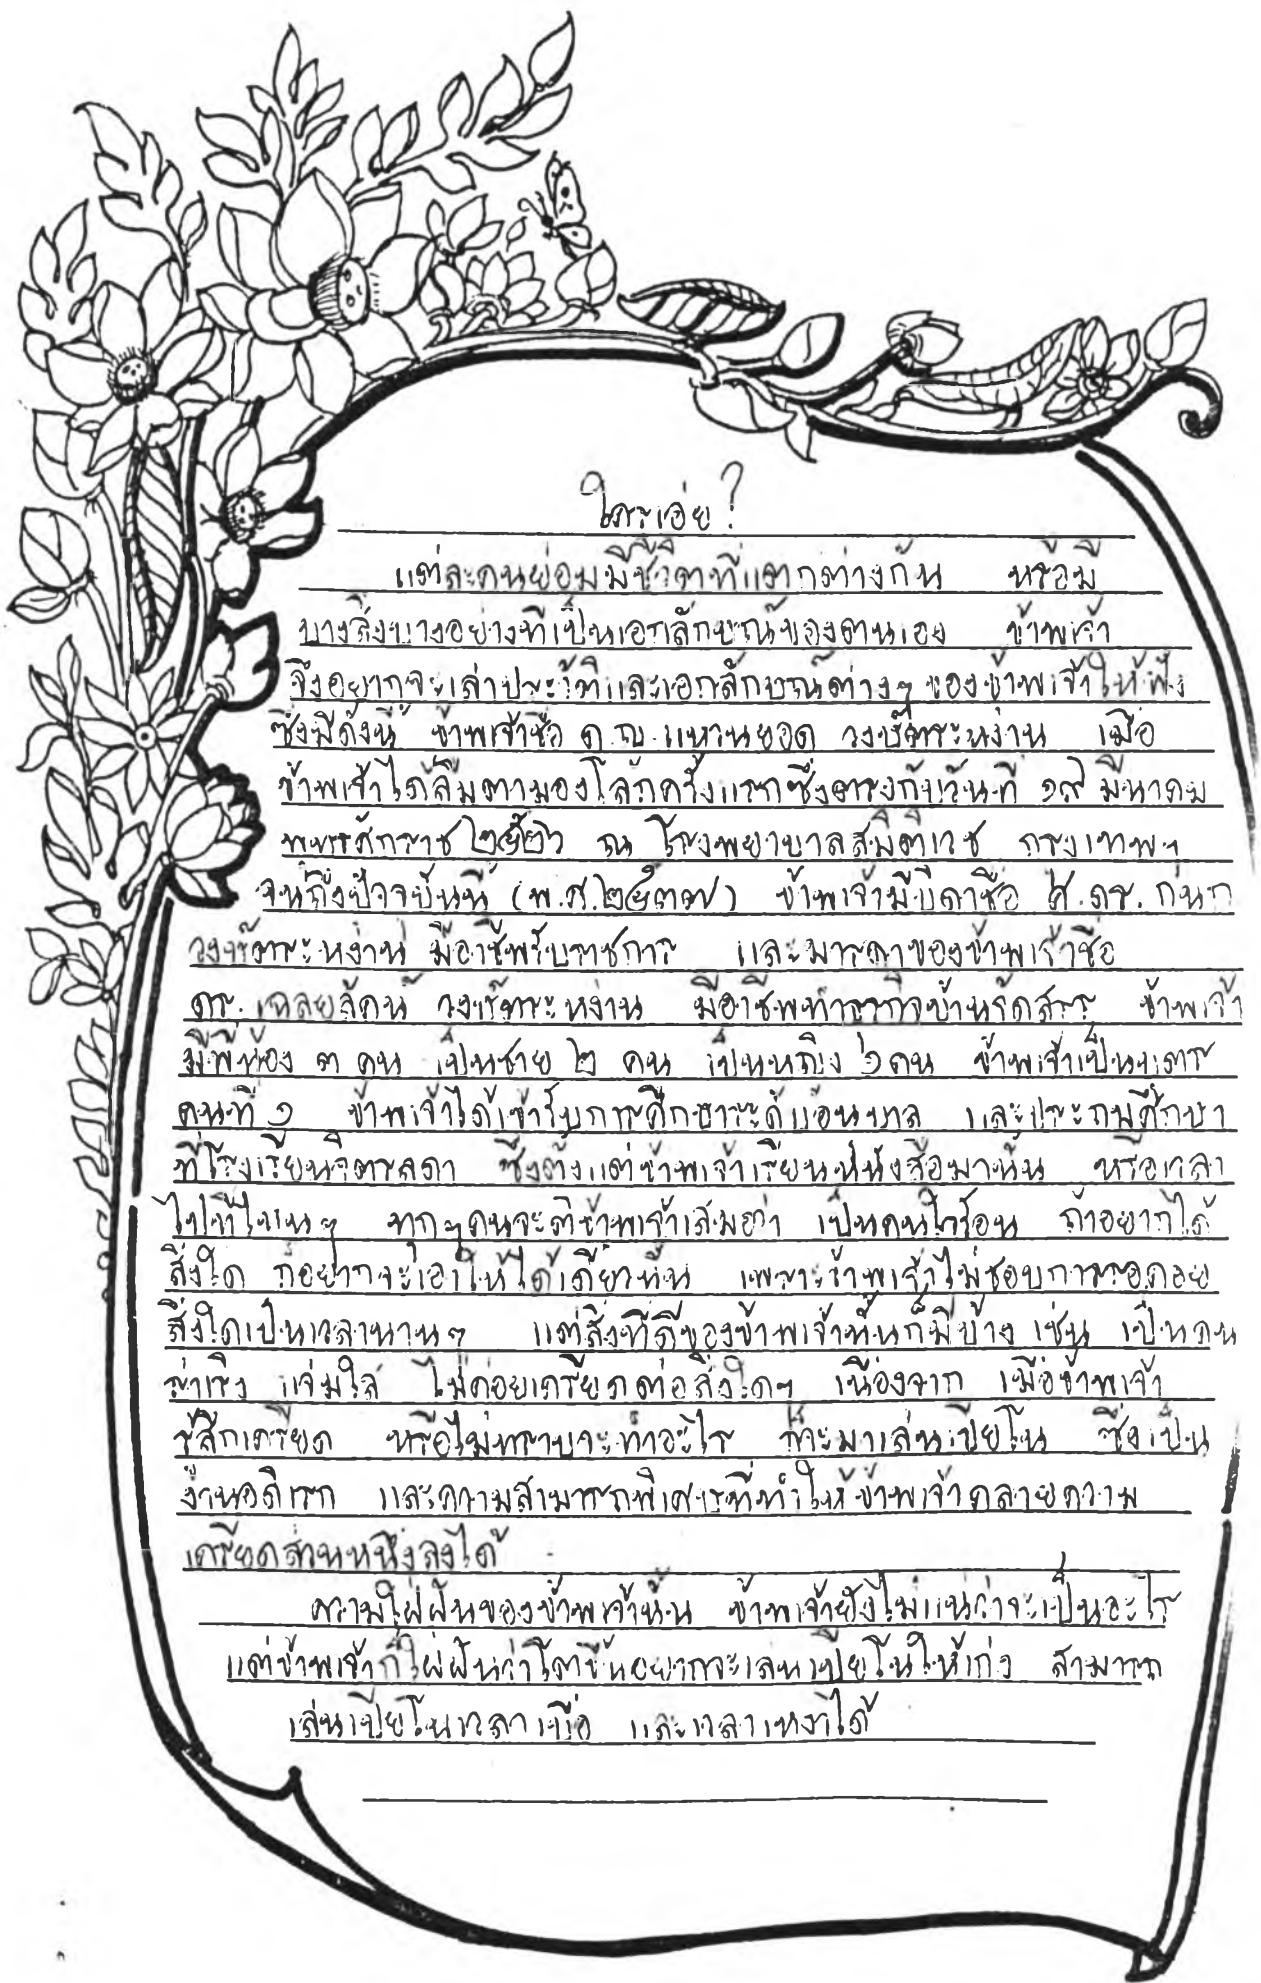 ใครเอ่ย?
แต่ละคนย่อมมีชีวิตที่แตกต่างกัน หรือมี
บางสิ่งบางอย่างที่เป็นเอกลักษณ์ของตนเอง ข้าพเจ้า
จึงอยากจะเล่าประวัติและเอกลักษณ์ต่างๆของข้าพเจ้าให้ฟัง
ซึ่งมีดังนี้ ข้าพเจ้าชื่อ ด.ญ.แหวนยอด วงษ์ตระหง่าน เมื่อ
ข้าพเจ้าได้ลืมตามองโลกครั้งแรกซึ่งตรงกับวันที่ ๑๙ มีนาคม
พุทธศักราช ๒๕๒๖ ณ โรงพยาบาลสมิติเวช กรุงเทพฯ
จนถึงปัจจุบันนี้ (พ.ศ.๒๕๓๗) ข้าพเจ้ามีบิดาชื่อ ศ.ดร. กนก
วงษ์ตระหง่าน มีอาชีพรับราชการ และมารดาของข้าพเจ้าชื่อ
ดร. วงษ์ตระหง่าน มีอาชีพทำธุรกิจบ้านจัดสรร ข้าพเจ้า
มีพี่น้อง ๓ คน เป็นชาย ๒ คน เป็นหญิง ๑ คน ข้าพเจ้าเป็นบุตร
คนที่ ๑ ข้าพเจ้าได้เข้ารับการศึกษาระดับอนุบาล และประถมศึกษา
ที่โรงเรียนจิตรลดา ซึ่งตั้งแต่ข้าพเจ้าเรียนหนังสือมานั้น หรือเวลา
ไปที่ไหนๆ ทุกๆคนจะติข้าพเจ้าเสมอว่า เป็นคนใจร้อน ถ้าอยากได้
สิ่งใด ก็อยากจะเอาให้ได้เดี๋ยวนั้น เพราะข้าพเจ้าไม่ชอบการรอคอย
สิ่งใดเป็นเวลานานๆ แต่สิ่งที่ดีของข้าพเจ้านั้นก็มีบ้าง เช่น เป็นคน
ร่าเริง แจ่มใส ไม่ค่อยเครียดต่อสิ่งใดๆ เนื่องจาก เมื่อข้าพเจ้า
รู้สึกเครียด หรือไม่ทราบจะทำอะไร ก็จะมาเล่นเปียโน ซึ่งเป็น
งานอดิเรก และความสามารถพิเศษที่ทำให้ข้าพเจ้าคลายความ
เครียดส่วนหนึ่งลงได้
ความใฝ่ฝันของข้าพเจ้านั้น ข้าพเจ้ายังไม่แน่ว่าจะเป็นอะไร
แต่ข้าพเจ้าก็ใฝ่ฝันว่าโตขึ้นอยากจะเล่นเปียโนให้เก่ง สามารถ
เล่นเปียโนเวลาเบื่อ และเวลาเหงาได้